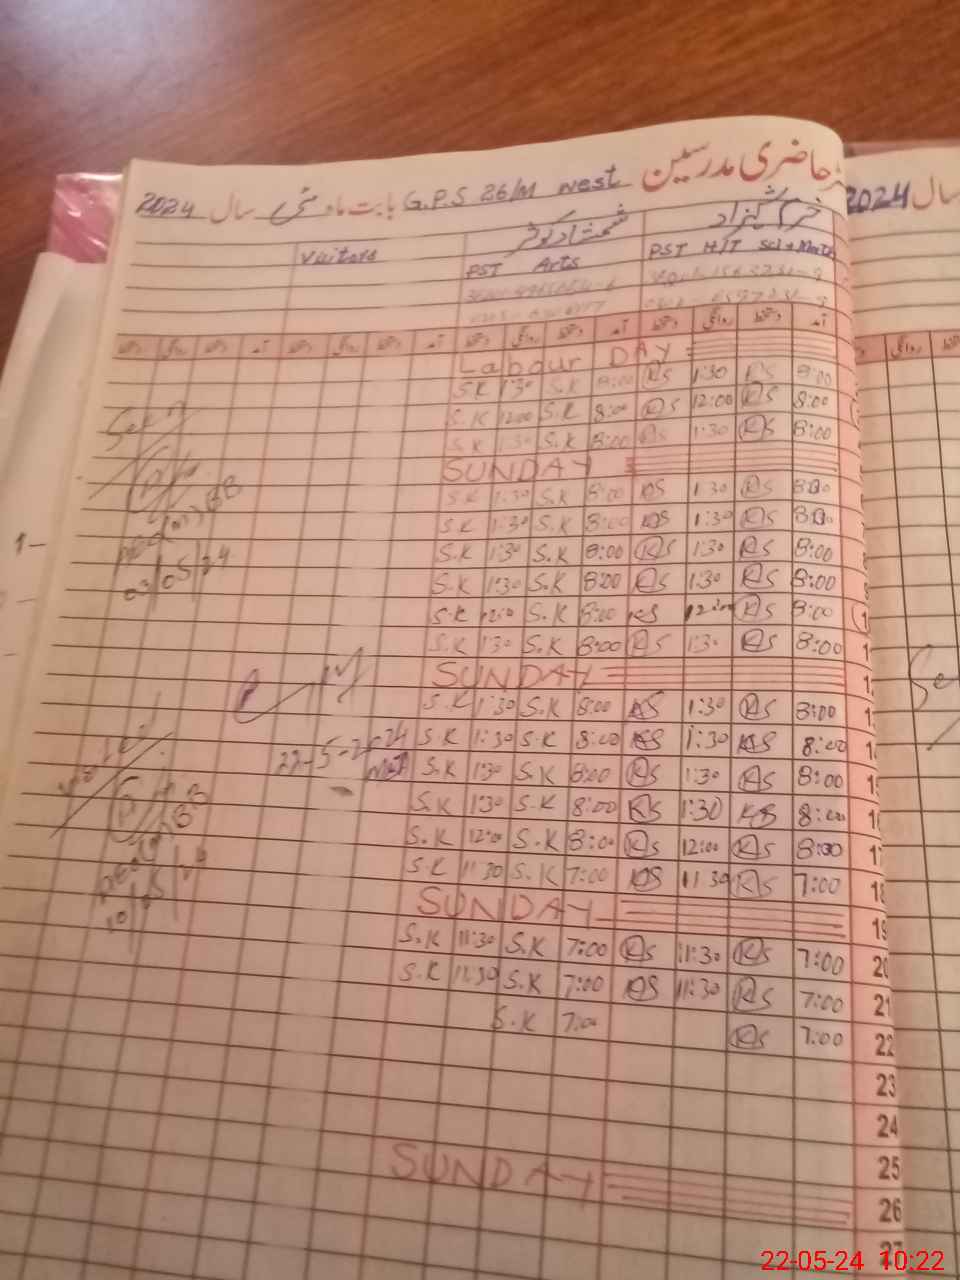 حاضری مدرسین G.P.S 26/M West بابت ماہ مئی سال 2024
سال 2024
Visitors
PST Arts
PST H/T Sci+Math
آمد دستخط روانگی دستخط آمد دستخط روانگی دستخط آمد دستخط روانگی دستخط آمد دستخط روانگی دستخط
Labour DAY
S.K 1:30 S.K 8:00 KS 1:30 KS 8:00
S.K 12:00 S.K 8:00 KS 12:00 KS 8:00
S.K 1:30 S.K 8:00 KS 1:30 KS 8:00
SUNDAY
S.K 1:30 S.K 8:00 KS 1:30 KS 8:00
S.K 1:30 S.K 8:00 KS 1:30 KS 8:00
S.K 1:30 S.K 8:00 KS 1:30 KS 8:00
S.K 1:30 S.K 8:00 KS 1:30 KS 8:00
S.K 12:00 S.K 8:00 KS 12:00 KS 8:00
S.K 1:30 S.K 8:00 KS 1:30 KS 8:00
SUNDAY
S.K 1:30 S.K 8:00 KS 1:30 KS 8:00
S.K 1:30 S.K 8:00 KS 1:30 KS 8:00
S.K 1:30 S.K 8:00 KS 1:30 KS 8:00
S.K 1:30 S.K 8:00 KS 1:30 KS 8:00
S.K 12:00 S.K 8:00 KS 12:00 KS 8:00 17
S.K 11:30 S.K 7:00 KS 11:30 KS 7:00 18
SUNDAY 19
S.K 11:30 S.K 7:00 KS 11:30 KS 7:00 20
S.K 11:30 S.K 7:00 KS 11:30 KS 7:00 21
S.K 7:00 KS 7:00 22
23
24
25
SUNDAY 26
27
03/05/24
22-5-2024
10/05/24
22-05-24 10:22